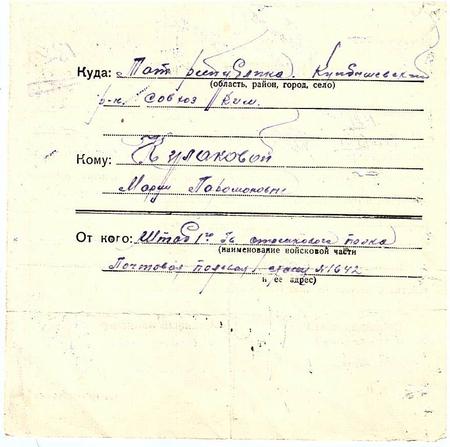 Куда: Тат республика. Куйбышевский
(область, район, город, село)
р-н. совхоз Ким.
Кому: Кулаковой
Марии Парамоновне
От кого: Штаб 1го стрелкового полка
(наименование войсковой части
Почтовая полевая станц №1642
и ее адрес)